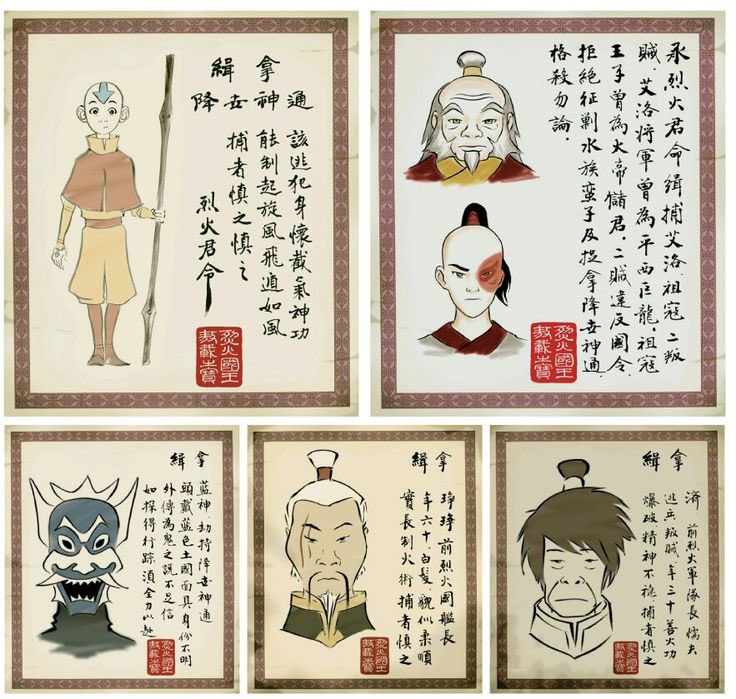 緝拿
降世神通
該逃犯身懷截氣神功
能制起旋風飛遁如風
捕者慎之慎之
烈火君令
烈火國王
敖載之寶
承烈火君命緝捕艾洛祖寇二叛
賊，艾洛將軍曾為平西巨龍，祖寇
王子曾為火帝儲君，二賊違反國令
拒絕征剿水族蠻子及捉拿降世神通，
格殺勿論．
烈火國王
敖載之寶
緝拿
藍神 劫持降世神通
頭戴藍色土國面具身份不明
外傳為鬼之說不足信
如探得行踪須全力以赴
烈火國王
敖載之寶
緝拿
琤琤 前烈火國艦長
年六十白髮，貌似柔順
實長制火術 捕者慎之
烈火國王
敖載之寶
緝拿
濟 前烈火軍隊長懦夫
逃兵叛賊，年三十善火功
爆破精神不穩，捕者慎之
烈火國王
敖載之寶